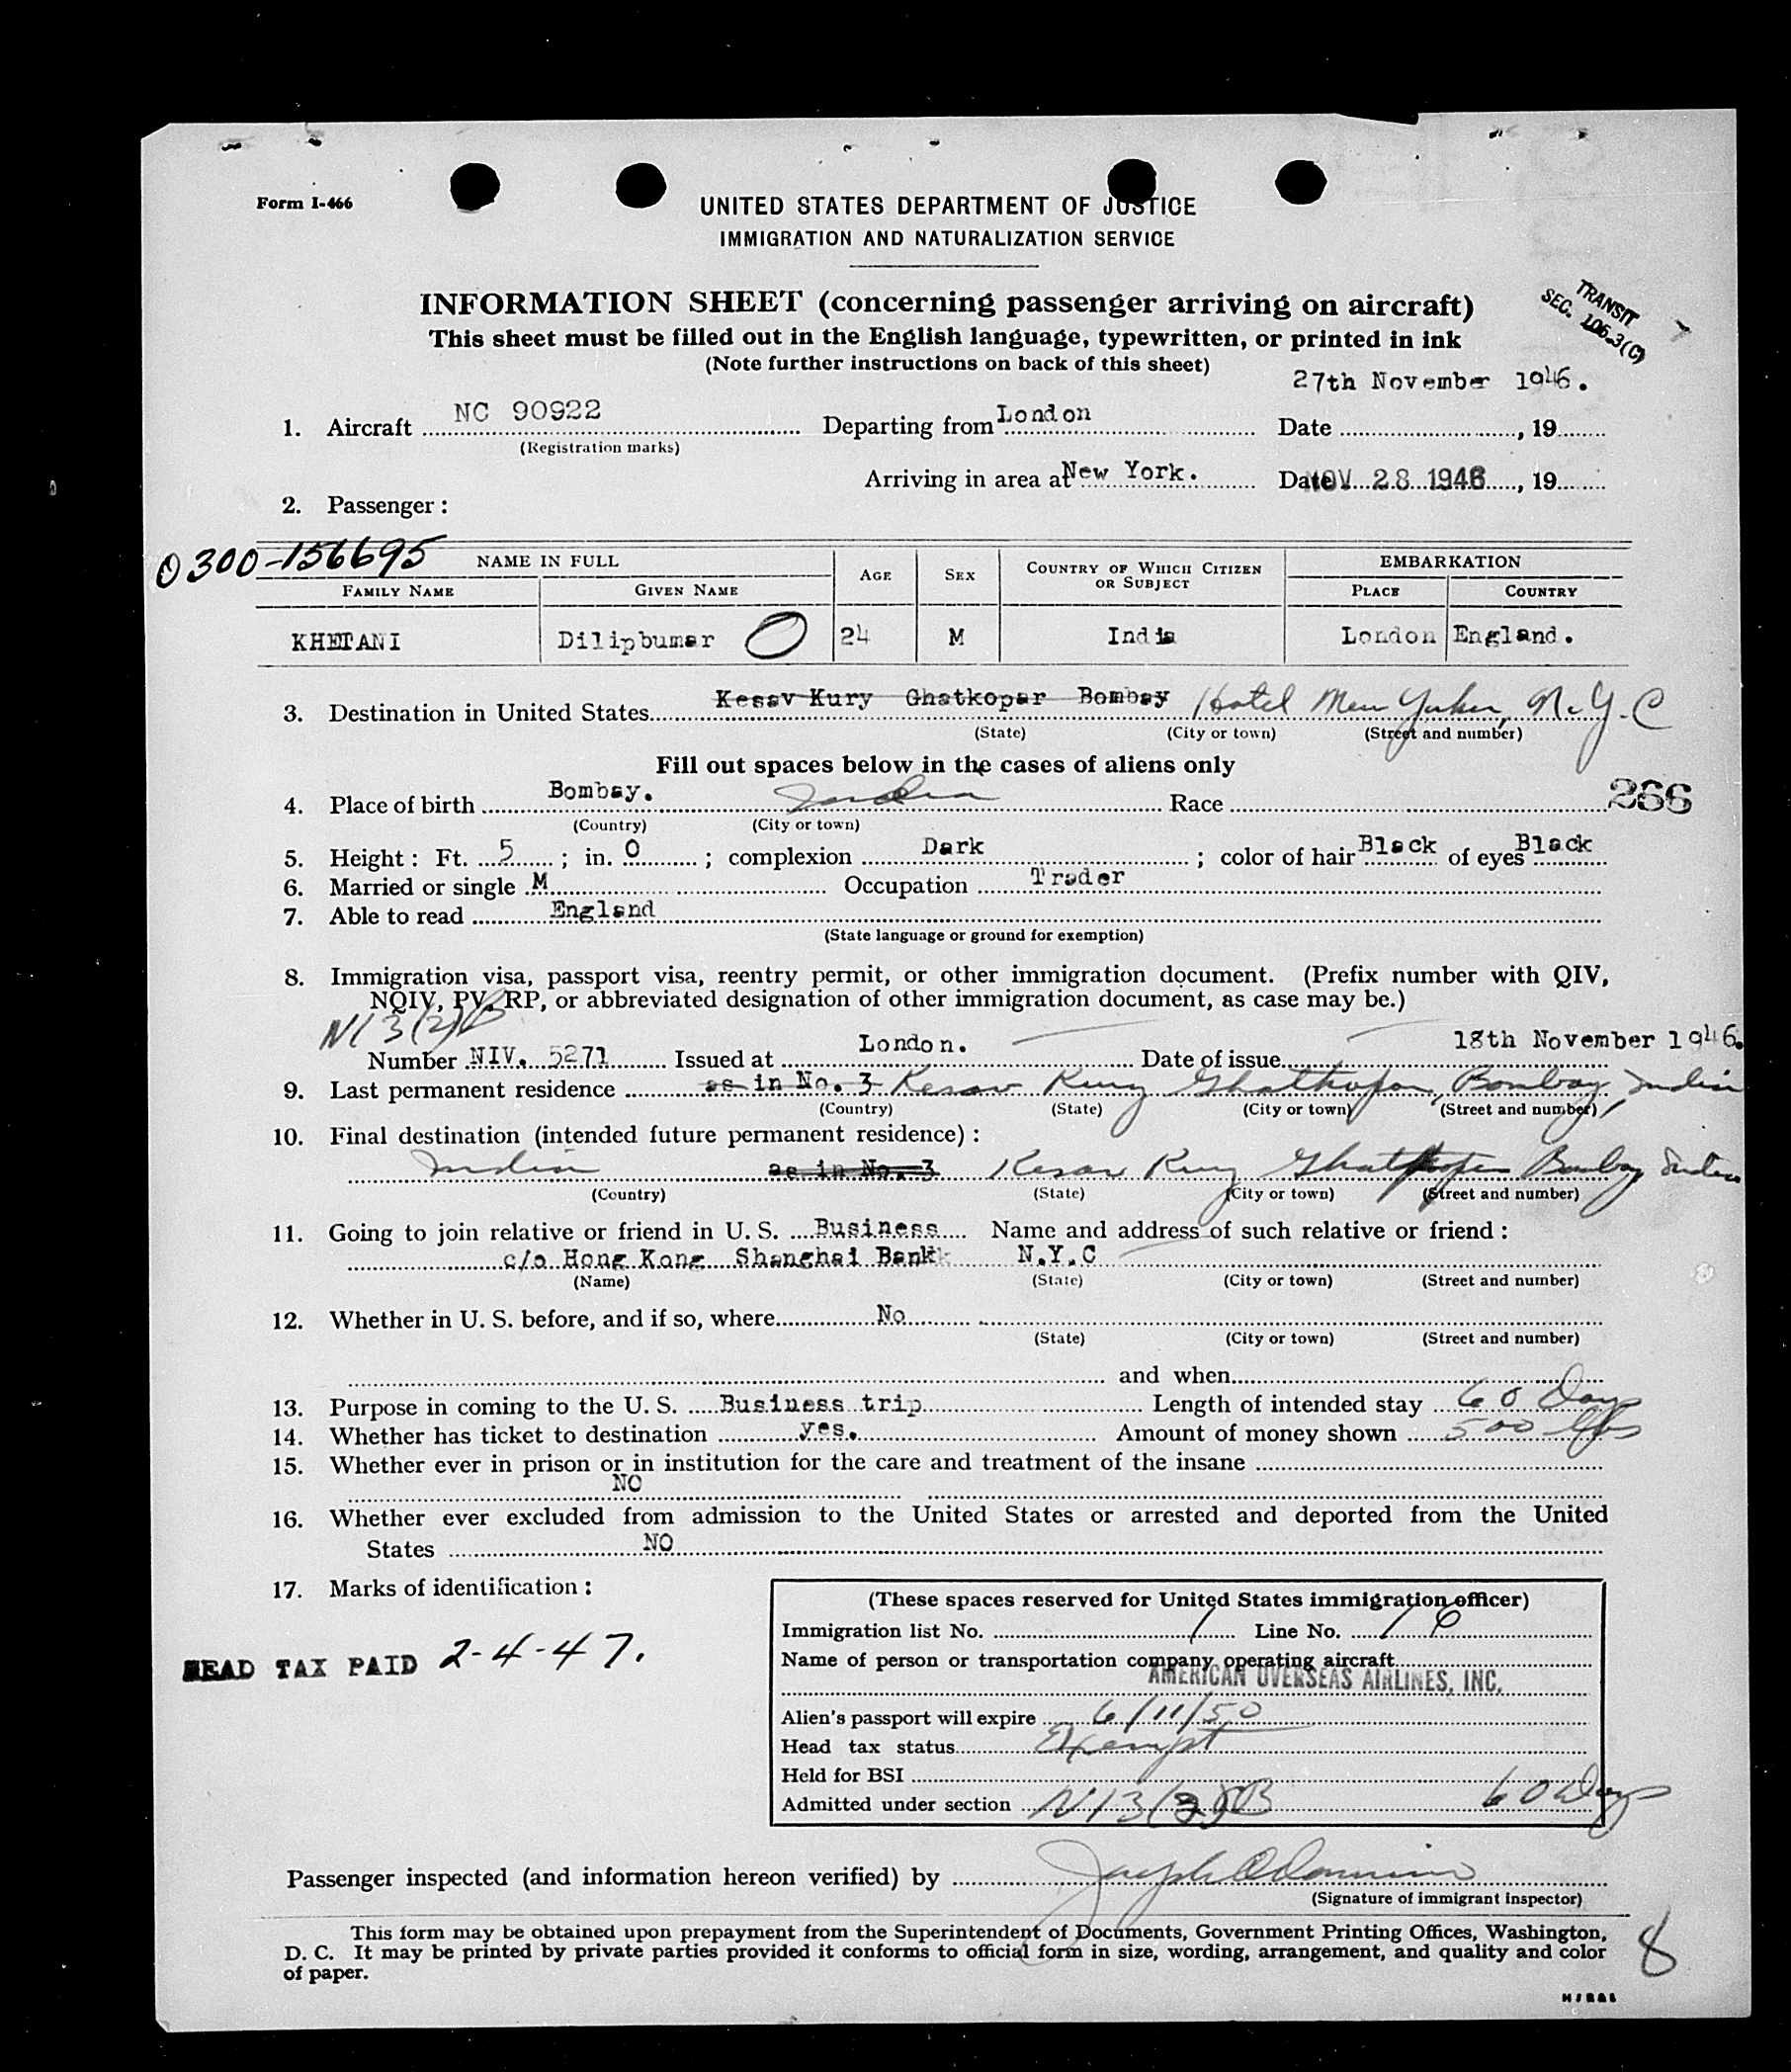 Form I-466
UNITED STATES DEPARTMENT OF JUSTICE
IMMIGRATION AND NATURALIZATION SERVICE
INFORMATION SHEET (concerning passenger arriving on aircraft)
TRANSIT
SEC. 106.3(C)
This sheet must be filled out in the English language, typewritten, or printed in ink
(Note further instructions on back of this sheet)
27th November 1946.
1. Aircraft NC 90922 Departing from London Date , 19
(Registration marks)
Arriving in area at New York. Date NOV 28 1946, 19
2. Passenger:
0300-156695
NAME IN FULL AGE SEX COUNTRY OF WHICH CITIZEN OR SUBJECT EMBARKATION
FAMILY NAME GIVEN NAME PLACE COUNTRY
KHETANI Dilipbumar 24 M India London England.
3. Destination in United States Kesav Kury Ghatkopar Bombay Hotel New Yorker, N.Y.C
(State) (City or town) (Street and number)
Fill out spaces below in the cases of aliens only
4. Place of birth Bombay. India Race 266
(Country) (City or town)
5. Height: Ft. 5; in. 0; complexion Dark; color of hair Black of eyes Black
6. Married or single M Occupation Trader
7. Able to read England
(State language or ground for exemption)
8. Immigration visa, passport visa, reentry permit, or other immigration document. (Prefix number with QIV,
NQIV, PV, RP, or abbreviated designation of other immigration document, as case may be.)
N 3(2)B
Number NIV. 5271 Issued at London. Date of issue 18th November 1946.
9. Last permanent residence as in No. 3 Kesav Kury Ghatkopar, Bombay, India
(Country) (State) (City or town) (Street and number)
10. Final destination (intended future permanent residence):
India as in No. 3 Kesav Kury Ghatkopar Bombay India
(Country) (State) (City or town) (Street and number)
11. Going to join relative or friend in U. S. Business Name and address of such relative or friend:
c/o Hong Kong Shanghai Bank N.Y.C
(Name) (State) (City or town) (Street and number)
12. Whether in U. S. before, and if so, where No
(State) (City or town) (Street and number)
and when
13. Purpose in coming to the U. S. Business trip Length of intended stay 60 Days
14. Whether has ticket to destination yes. Amount of money shown 500
15. Whether ever in prison or in institution for the care and treatment of the insane
NO
16. Whether ever excluded from admission to the United States or arrested and deported from the United
States NO
17. Marks of identification:
HEAD TAX PAID 2-4-47.
(These spaces reserved for United States immigration officer)
Immigration list No. 1 Line No. 16
Name of person or transportation company operating aircraft
AMERICAN OVERSEAS AIRLINES, INC.
Alien's passport will expire 6/11/50
Head tax status Exempt
Held for BSI
Admitted under section N 3(2)B 60 Days
Passenger inspected (and information hereon verified) by Joseph
(Signature of immigrant inspector)
This form may be obtained upon prepayment from the Superintendent of Documents, Government Printing Offices, Washington,
D. C. It may be printed by private parties provided it conforms to official form in size, wording, arrangement, and quality and color
of paper.
8